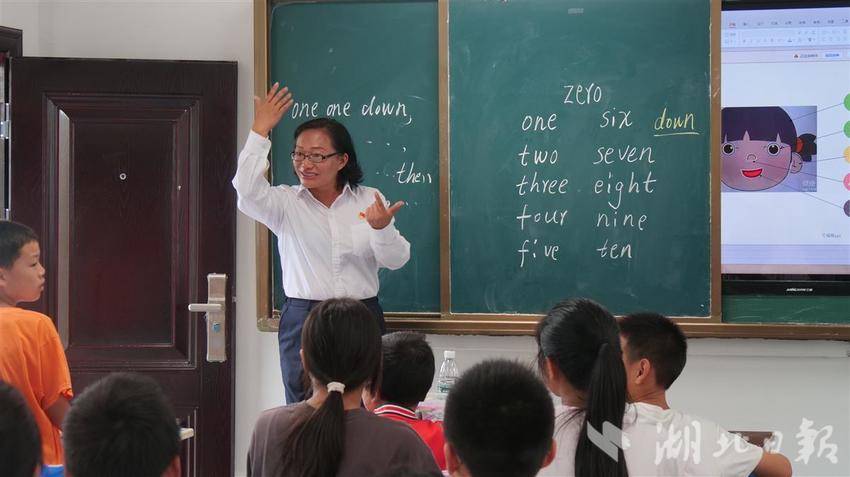 one one down,
..,
then
zero
one six down
two seven
three eight
four nine
five ten
湖北日报